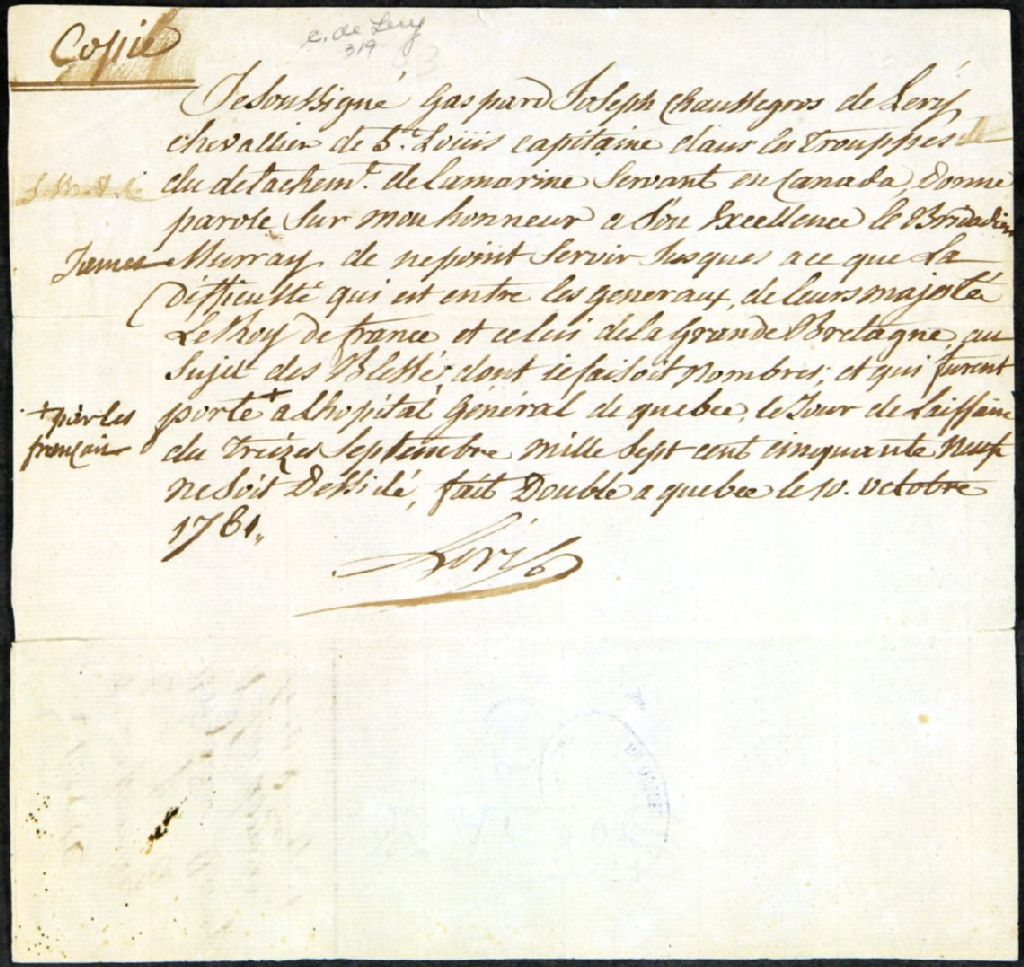 Copie
C. de Lery
319
Je Soussigné Gaspard Joseph Chaussegros de Lery
chevallier de St. Loüis capitaine dans les Trouppes
du detachemt. de lamarine Servant en Canada, donne
parole Sur mon honneur a Son Excellence le Brigadier
James Murray de ne point Servir Jusques a ce que La
difficulté qui est entre les generaux, de leurs majesté
Le Roy de france et celui de la Grande Bretagne, au
Sujet des Blessés dont je faisoit nombres, et qui furent
porté + a Lhopital Général de quebec, le Jour de Laiffaire
+ par les
françair
du Treize Septembre mille Sept cent cinquante neuf
ne Soit dessidé, fait Double a quebec le 10. octobre
1761.
Lery